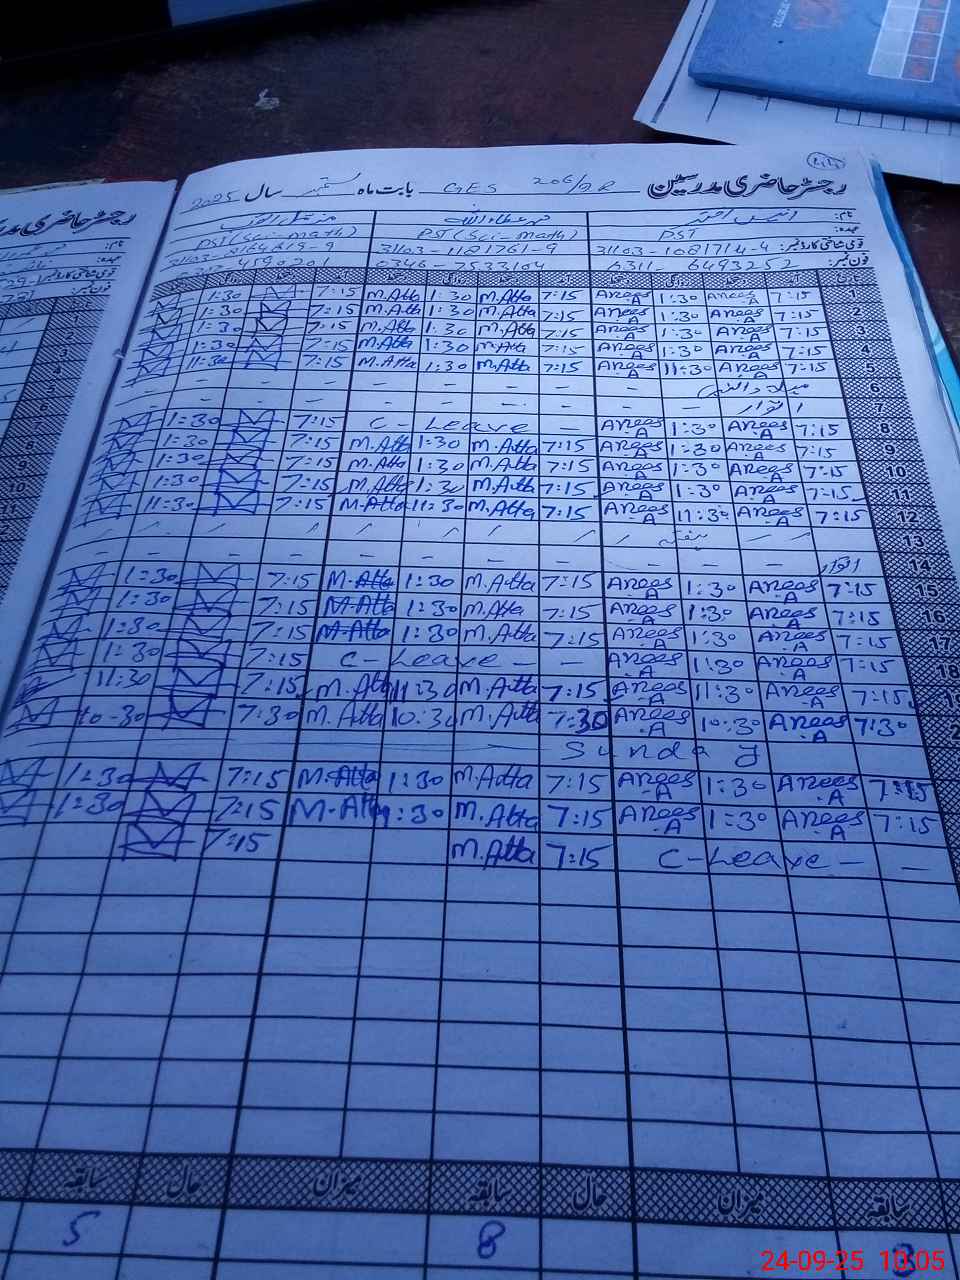 رجسٹر حاضری مدرسین GES 206/2R بابت ماہ ستمبر سال 2025
نام: انیس احمد محمد عطاء اللہ
عہدہ: PST PST (Sci-Math) PST (Sci-Math)
قومی شناختی کارڈ نمبر: 31103-1081714-4 31103-1181761-9
فون نمبر: 0311-6493252 0346-7533104 4590201
1 7:15 Anees.A 1:30 Anees.A 7:15 M.Atta 1:30 M.Atta 7:15 1:30
2 7:15 Anees.A 1:30 Anees.A 7:15 M.Atta 1:30 M.Atta 7:15 1:30
3 7:15 Anees.A 1:30 Anees.A 7:15 M.Atta 1:30 M.Atta 7:15 1:30
4 7:15 Anees.A 1:30 Anees.A 7:15 M.Atta 1:30 M.Atta 7:15 1:30
5 7:15 Anees.A 11:30 Anees.A 7:15 M.Atta 1:30 M.Atta 7:15 11:30
6 میلاد النبی
7 اتوار
8 7:15 Anees.A 1:30 Anees.A C-Leave 7:15 1:30
9 7:15 Anees.A 1:30 Anees.A 7:15 M.Atta 1:30 M.Atta 7:15 1:30
10 7:15 Anees.A 1:30 Anees.A 7:15 M.Atta 1:30 M.Atta 7:15 1:30
11 7:15 Anees.A 1:30 Anees.A 7:15 M.Atta 1:30 M.Atta 7:15 1:30
12 7:15 Anees.A 11:30 Anees.A 7:15 M.Atta 11:30 M.Atta 7:15 11:30
13 ہفتہ
14 اتوار
15 7:15 Anees.A 1:30 Anees.A 7:15 M.Atta 1:30 M.Atta 7:15 1:30
16 7:15 Anees.A 1:30 Anees.A 7:15 M.Atta 1:30 M.Atta 7:15 1:30
17 7:15 Anees.A 1:30 Anees.A 7:15 M.Atta 1:30 M.Atta 7:15 1:30
18 7:15 Anees.A 1:30 Anees.A C-Leave 7:15 1:30
7:15 Anees.A 11:30 Anees.A 7:15 M.Atta 11:30 M.Atta 7:15 11:30
7:30 Anees.A 10:30 Anees.A 7:30 M.Atta 10:30 M.Atta 7:30 10-30
Sunday
7:15 Anees.A 1:30 Anees.A 7:15 M.Atta 1:30 M.Atta 7:15 1:30
7:15 Anees.A 1:30 Anees.A 7:15 M.Atta 1:30 M.Atta 7:15 1:30
C-Leave 7:15 M.Atta 7:15
سابقہ میزان حال سابقہ میزان حال سابقہ
8 5
24-09-25 10:05